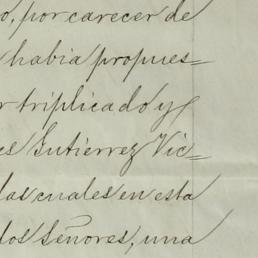 o, por carecer de
habia propues=
r triplicado y
es Gutierrez Vic=
las cuales en esta
dos Señores, una